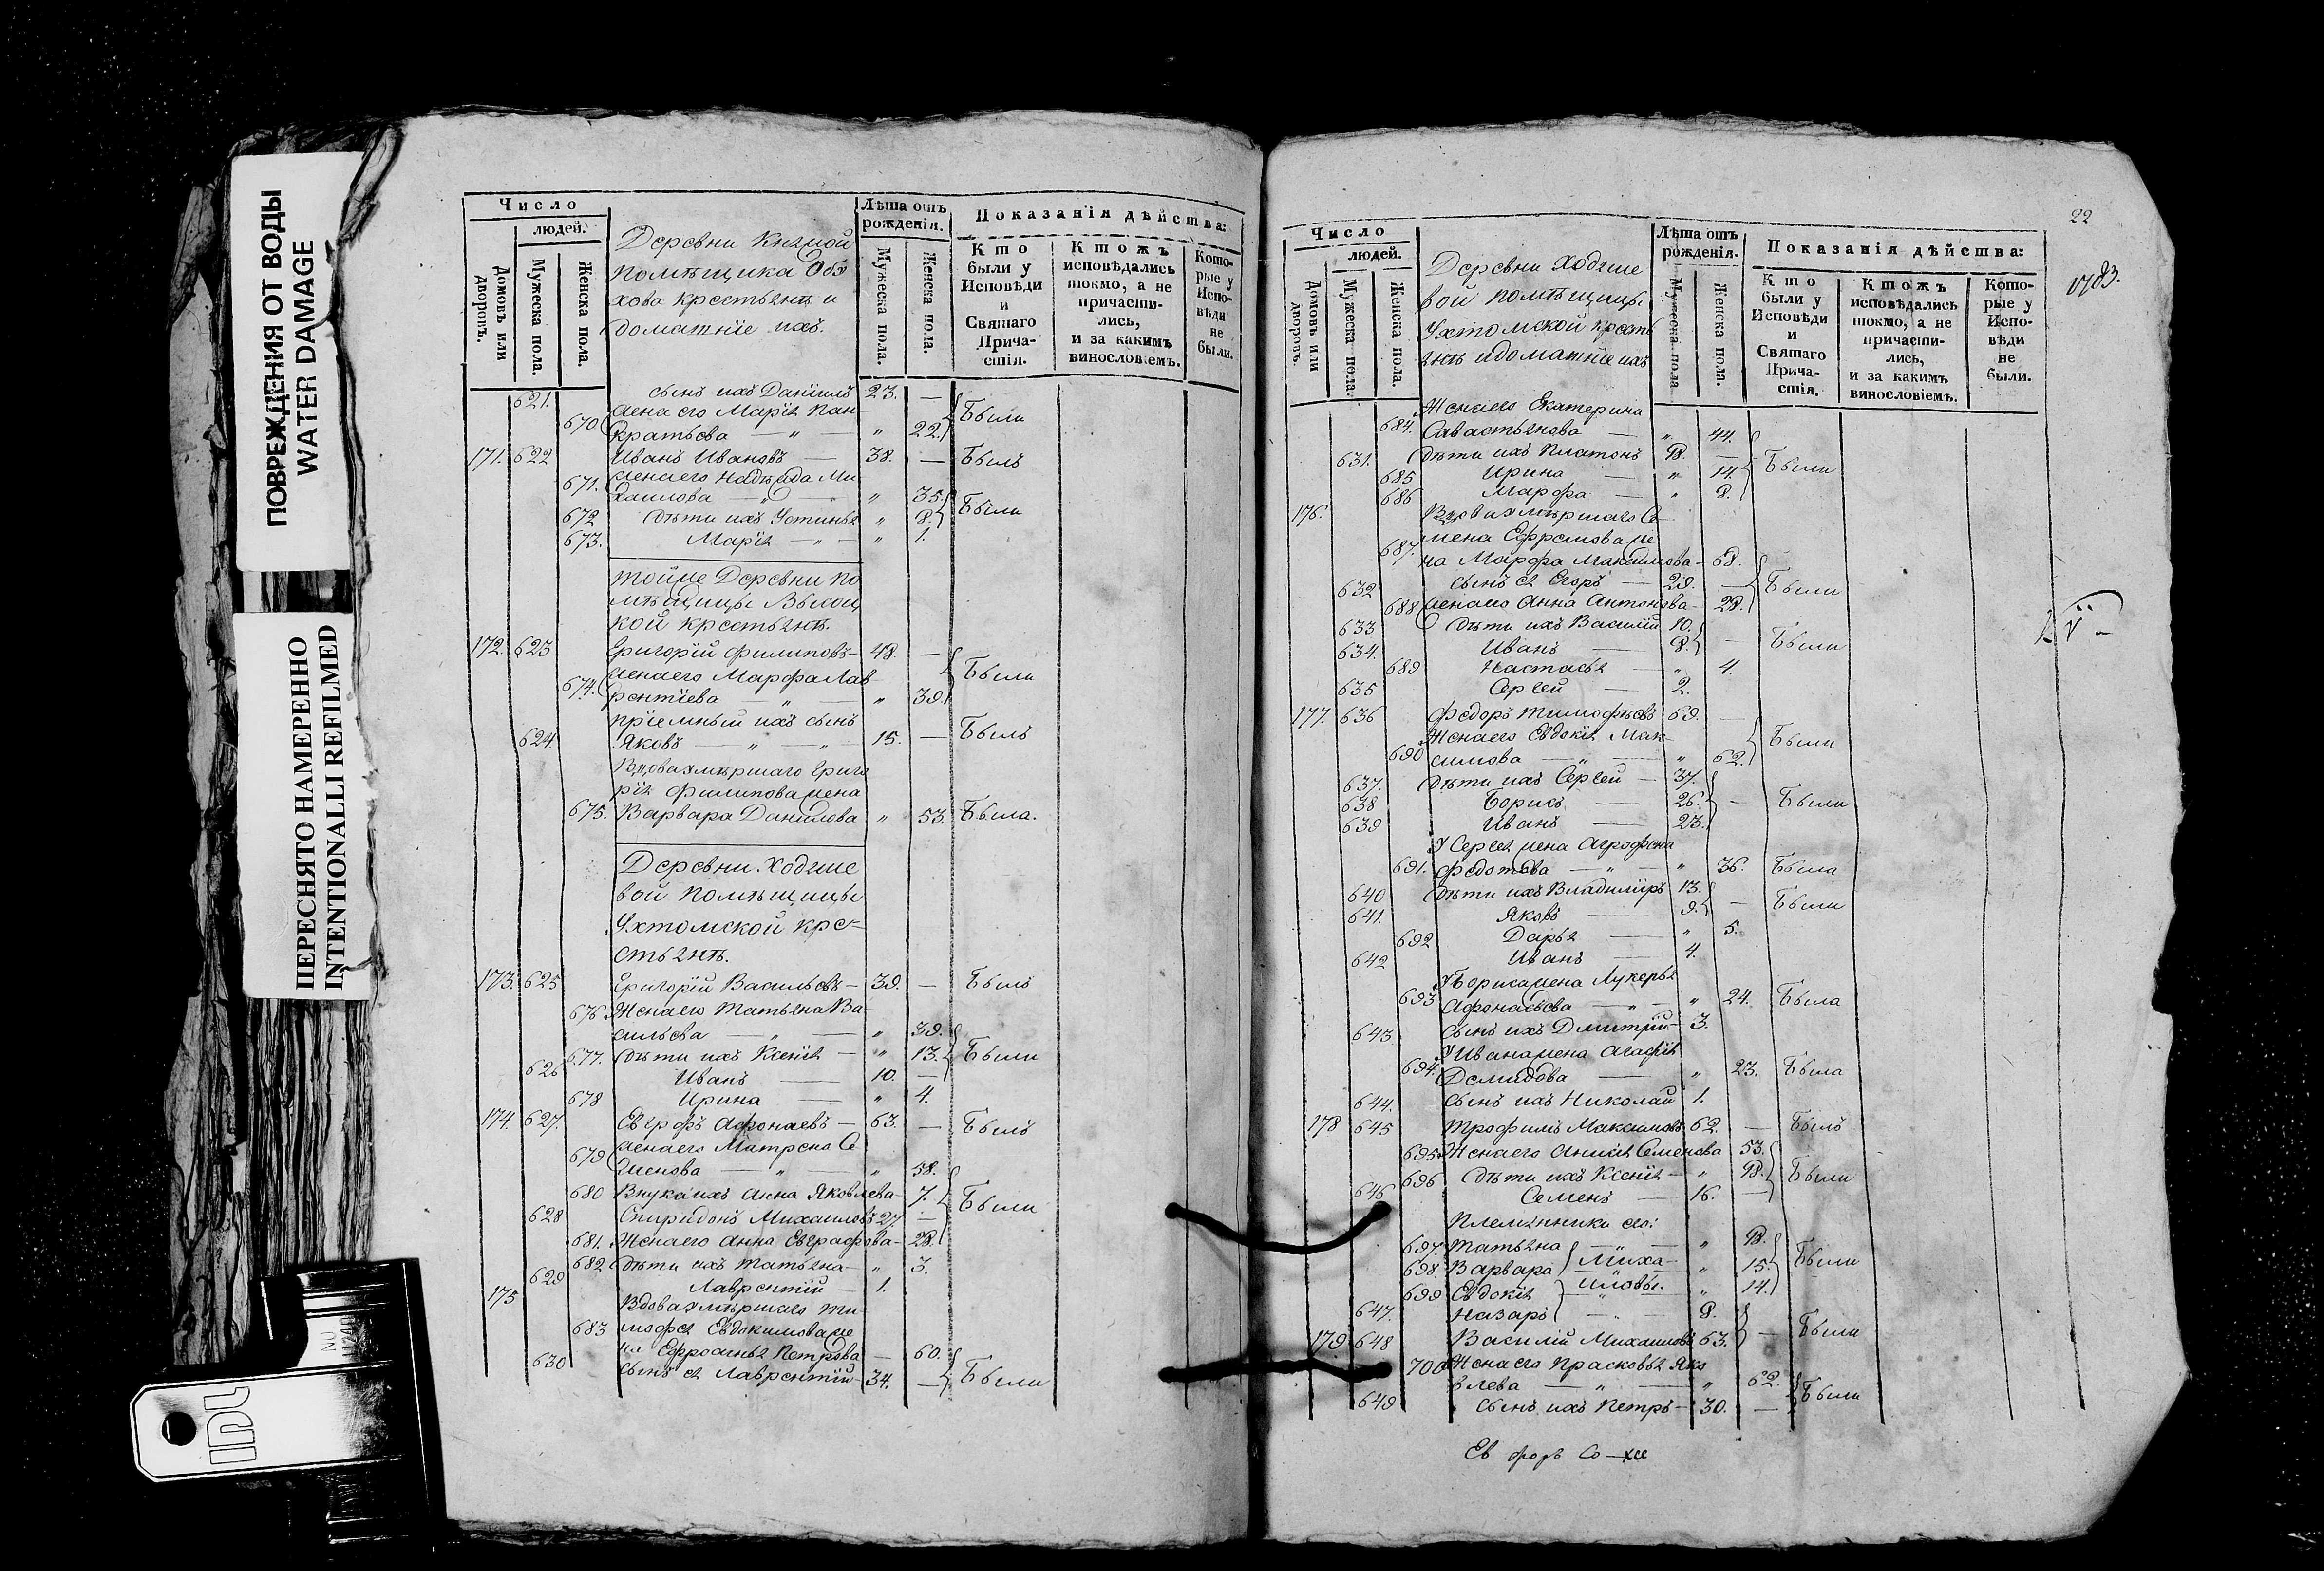 ПОВРЕЖДЕНИЯ ОТ ВОДЫ
WATER DAMAGE
ПЕРЕСНЯТО НАМЕРЕННО
INTENTIONALLI REFILMED
Число
людей.
Домовъ или дворовъ.
Мужеска пола.
Женска пола.
Деревни Княжой
помѣщика Обу
хова крестьянъ и
домашніе ихъ.
Лѣта отъ рожденія.
Мужеска пола.
Женска пола.
Показанія дѣйства:
Кто были у Исповѣди и Святаго Прича- стія.
Ктожъ исповѣдались токмо, а не причасти- лись, и за какимъ винословіемъ.
Кото- рые у Испо- вѣди не были.
621. сынъ ихъ Даніилъ 23. —
жена его Марія Пан
670 кратьева — „ — „ 22. Были
171. 622 Иванъ Ивановъ — 38. — Былъ
671. жена его Надежда Ми
хаилова — „ — „ 35. Были
672 дѣти ихъ Устинья „ 8.
673. Марія — „ — „ 1.
тойже Деревни по
мѣщицы Высоц
кой крестьянъ.
172. 623 Григорій Филиповъ — 48. —
674. жена его Марфа Лав
рентіева — „ — „ 39. Были
пріемный ихъ сынъ
624. Яковъ — „ — „ — 15. — Былъ
Вдова умѣршаго Григо
рія Филипова жена
675. Варвара Данилова „ 53. Была.
Деревни Ходяше
вой помѣщицы
Ухтомской кре-
стьянъ.
173. 625 Григорій Васильевъ — 39. — Былъ
676 Жена его Татьяна Ва
сильева — „ — „ 39.
677. дѣти ихъ Ксенія — „ 13. Были
626 Иванъ — 10. —
678 Ирина — „ 4.
174. 627. Евграфъ Афонаевъ — 63. — Былъ
679 жена его Матрена Се
менова — „ — „ 58.
680 Внука ихъ Анна Яковлева — 7. Были
628 Спиридонъ Михаиловъ 27. —
681. Жена его Анна Евграфова — 28.
682 дѣти ихъ Татьяна — „ 3.
629 Лаврентій — 1.
175 Вдова умѣршаго Ти
683 мофея Евдокимова же
на Ефросинья Петрова — 60.
630 сынъ ея Лаврентій — 34. — Были
22
1783.
Число
людей.
Домовъ или дворовъ.
Мужеска пола.
Женска пола.
Деревни Ходяше
вой помѣщицы
Ухтомской кресть
янъ и домашніе ихъ
Лѣта отъ рожденія.
Мужеска пола.
Женска пола.
Показанія дѣйства:
Кто были у Исповѣди и Святаго Прича- стія.
Ктожъ исповѣдались токмо, а не причасти- лись, и за какимъ винословіемъ.
Кото- рые у Испо- вѣди не были.
Жена его Екатерина
684. Савастьянова — „ 44.
631. дѣти ихъ Платонъ 18. —
685 Ирина — „ 14. Были
686 Марфа — „ 8.
176. Вдова умѣршаго Се
687. мена Ефремова же
на Марфа Максимова — 68.
632 сынъ ея Егоръ — 29. — Были
688 жена его Анна Антонова — 28.
633 дѣти ихъ Василій 10.
634. Иванъ — 8. — Были
689 Настасья — „ 4.
635 Сергей — 2.
177. 636 Федоръ Тимофѣевъ 69. —
Жена его Евдокія Мак-
690 симова — „ — „ 62. Были
637. дѣти ихъ Сергей — 37.
638 Борисъ — 26. — Были
639 Иванъ — 23.
У Сергея жена Агрофена
691. Федотова — „ — „ 36. Была
640 дѣти ихъ Владиміръ 13.
641. Яковъ — 9. — Были
692 Дарья — „ 5.
642 Иванъ — 4.
У Бориса жена Лукерья
693 Афонасьева — „ — „ 24. Была
643 сынъ ихъ Дмитрій — 3.
У Ивана жена Агафія
694. Демидова — „ 23. Была
644. сынъ ихъ Николай 1.
178 645 Трофимъ Максимовъ 62. — Былъ
695 Жена его Анисія Семенова 53.
696 дѣти ихъ Ксенія — „ 18. Были
646 Семенъ — 16. —
Племянники его:
697. Татьяна Миха- „ 18.
698. Варвара иловы. „ 15. Были
699 Евдокія „ 14.
647. Назаръ — 8.
179 648 Василій Михаиловъ 63. — Были
700 Жена его Прасковья Яко
влева — „ — „ 62.
649 сынъ ихъ Петръ — 30. — Были